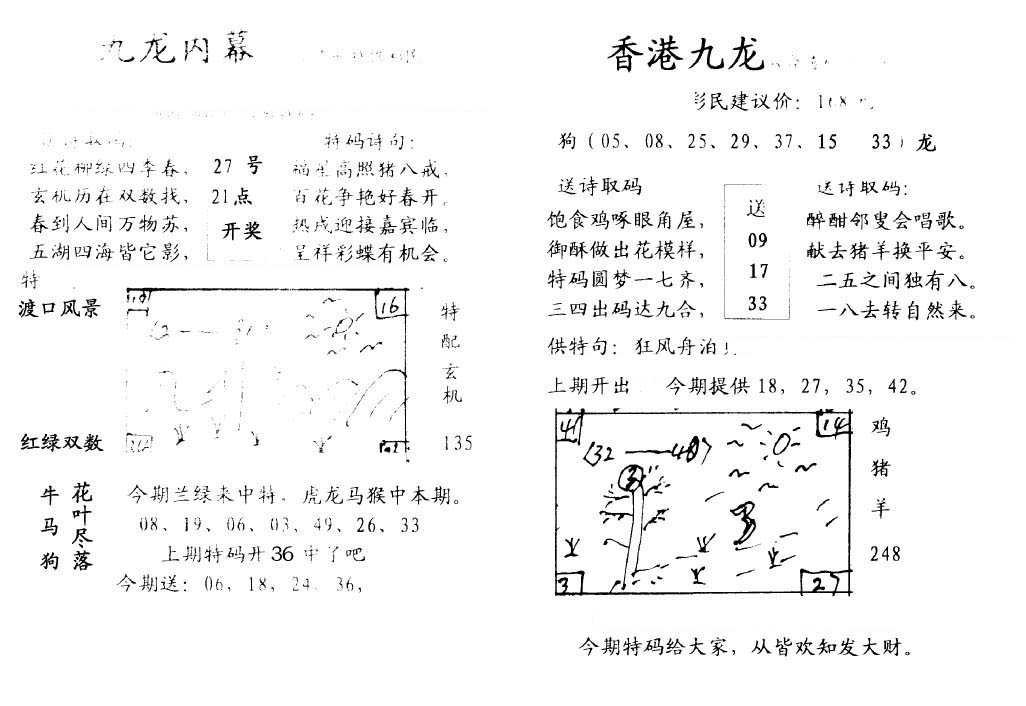 九龙内幕
特码诗句:
红花柳绿四季春, 27 号 福星高照猪八戒,
玄机历在双数找, 21点 百花争艳好春开。
春到人间万物苏, 开奖 热戌迎接嘉宾临,
五湖四海皆它影, 呈祥彩蝶有机会。
特
渡口风景
16
特配玄机
红绿双数
135
牛马狗
花叶尽落
今期兰绿来中特, 虎龙马猴中本期。
08、19、06、03、49、26、33
上期特码开36中了吧
今期送: 06, 18, 24, 36,
香港九龙
彩民建议价: 168
狗(05、08、25、29、37、15 33)龙
送诗取码
饱食鸡啄眼角屋,
御酥做出花模样,
特码圆梦一七齐,
三四出码达九合,
送
09
17
33
送诗取码:
醉酣邻叟会唱歌。
献去猪羊换平安。
二五之间独有八。
一八去转自然来。
供特句: 狂风舟泊
上期开出 今期提供18, 27, 35, 42。
41
14
32——48
3
3
27
鸡
猪
羊
248
今期特码给大家, 从皆欢知发大财。